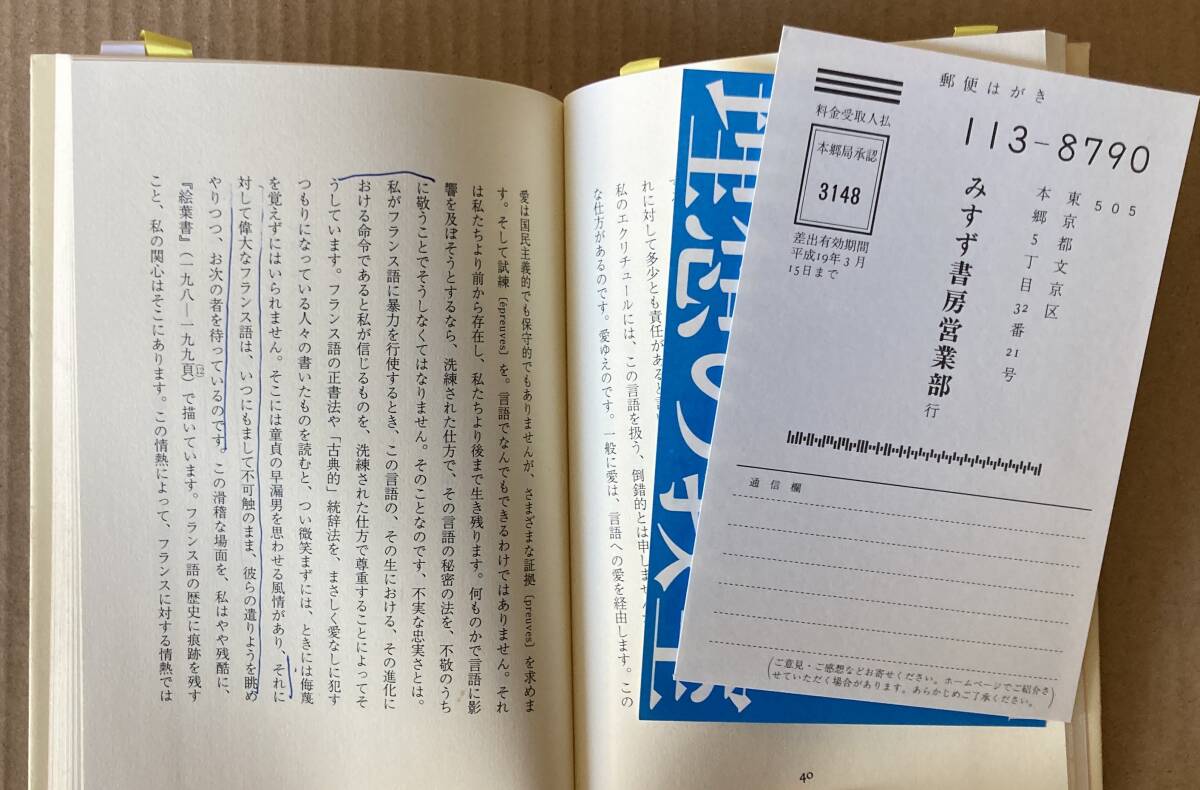 郵便はがき
113-8790
505
東京都文京区
本郷5丁目32番21号
みすず書房営業部 行
料金受取人払
本郷局承認
3148
差出有効期間
平成19年3月
15日まで
通信欄
(ご意見・ご感想などお寄せください。ホームページでご紹介さ
せていただく場合があります。あらかじめご了承ください。)
れに対して多少とも責任があると
私のエクリチュールには、この言語を扱う、倒錯的とは申しません
な仕方があるのです。愛ゆえのです。一般に愛は、言語への愛を経由します。この
40
愛は国民主義的でも保守的でもありませんが、さまざまな証拠〔preuves〕を求めま
す。そして試練〔épreuves〕を。言語でなんでもできるわけではありません。それ
は私たちより前から存在し、私たちより後まで生き残ります。何ものかで言語に影
響を及ぼそうとするなら、洗練された仕方で、その言語の秘密の法を、不敬のうち
に敬うことでそうしなくてはなりません。そのことなのです、不実な忠実さとは。
私がフランス語に暴力を行使するとき、この言語の、その生における、その進化に
おける命令であると私が信じるものを、洗練された仕方で尊重することによってそ
うしています。フランス語の正書法や「古典的」統辞法を、まさしく愛なしに犯す
つもりになっている人々の書いたものを読むと、つい微笑まずには、ときには侮蔑
を覚えずにはいられません。そこには童貞の早漏男を思わせる風情があり、それに
対して偉大なフランス語は、いつにもまして不可触のまま、彼らの遣りようを眺め
やりつつ、お次の者を待っているのです。この滑稽な場面を、私はやや残酷に、
『絵葉書』(一九八―一九九頁)[12]で描いています。フランス語の歴史に痕跡を残す
こと、私の関心はそこにあります。この情熱によって、フランスに対する情熱では